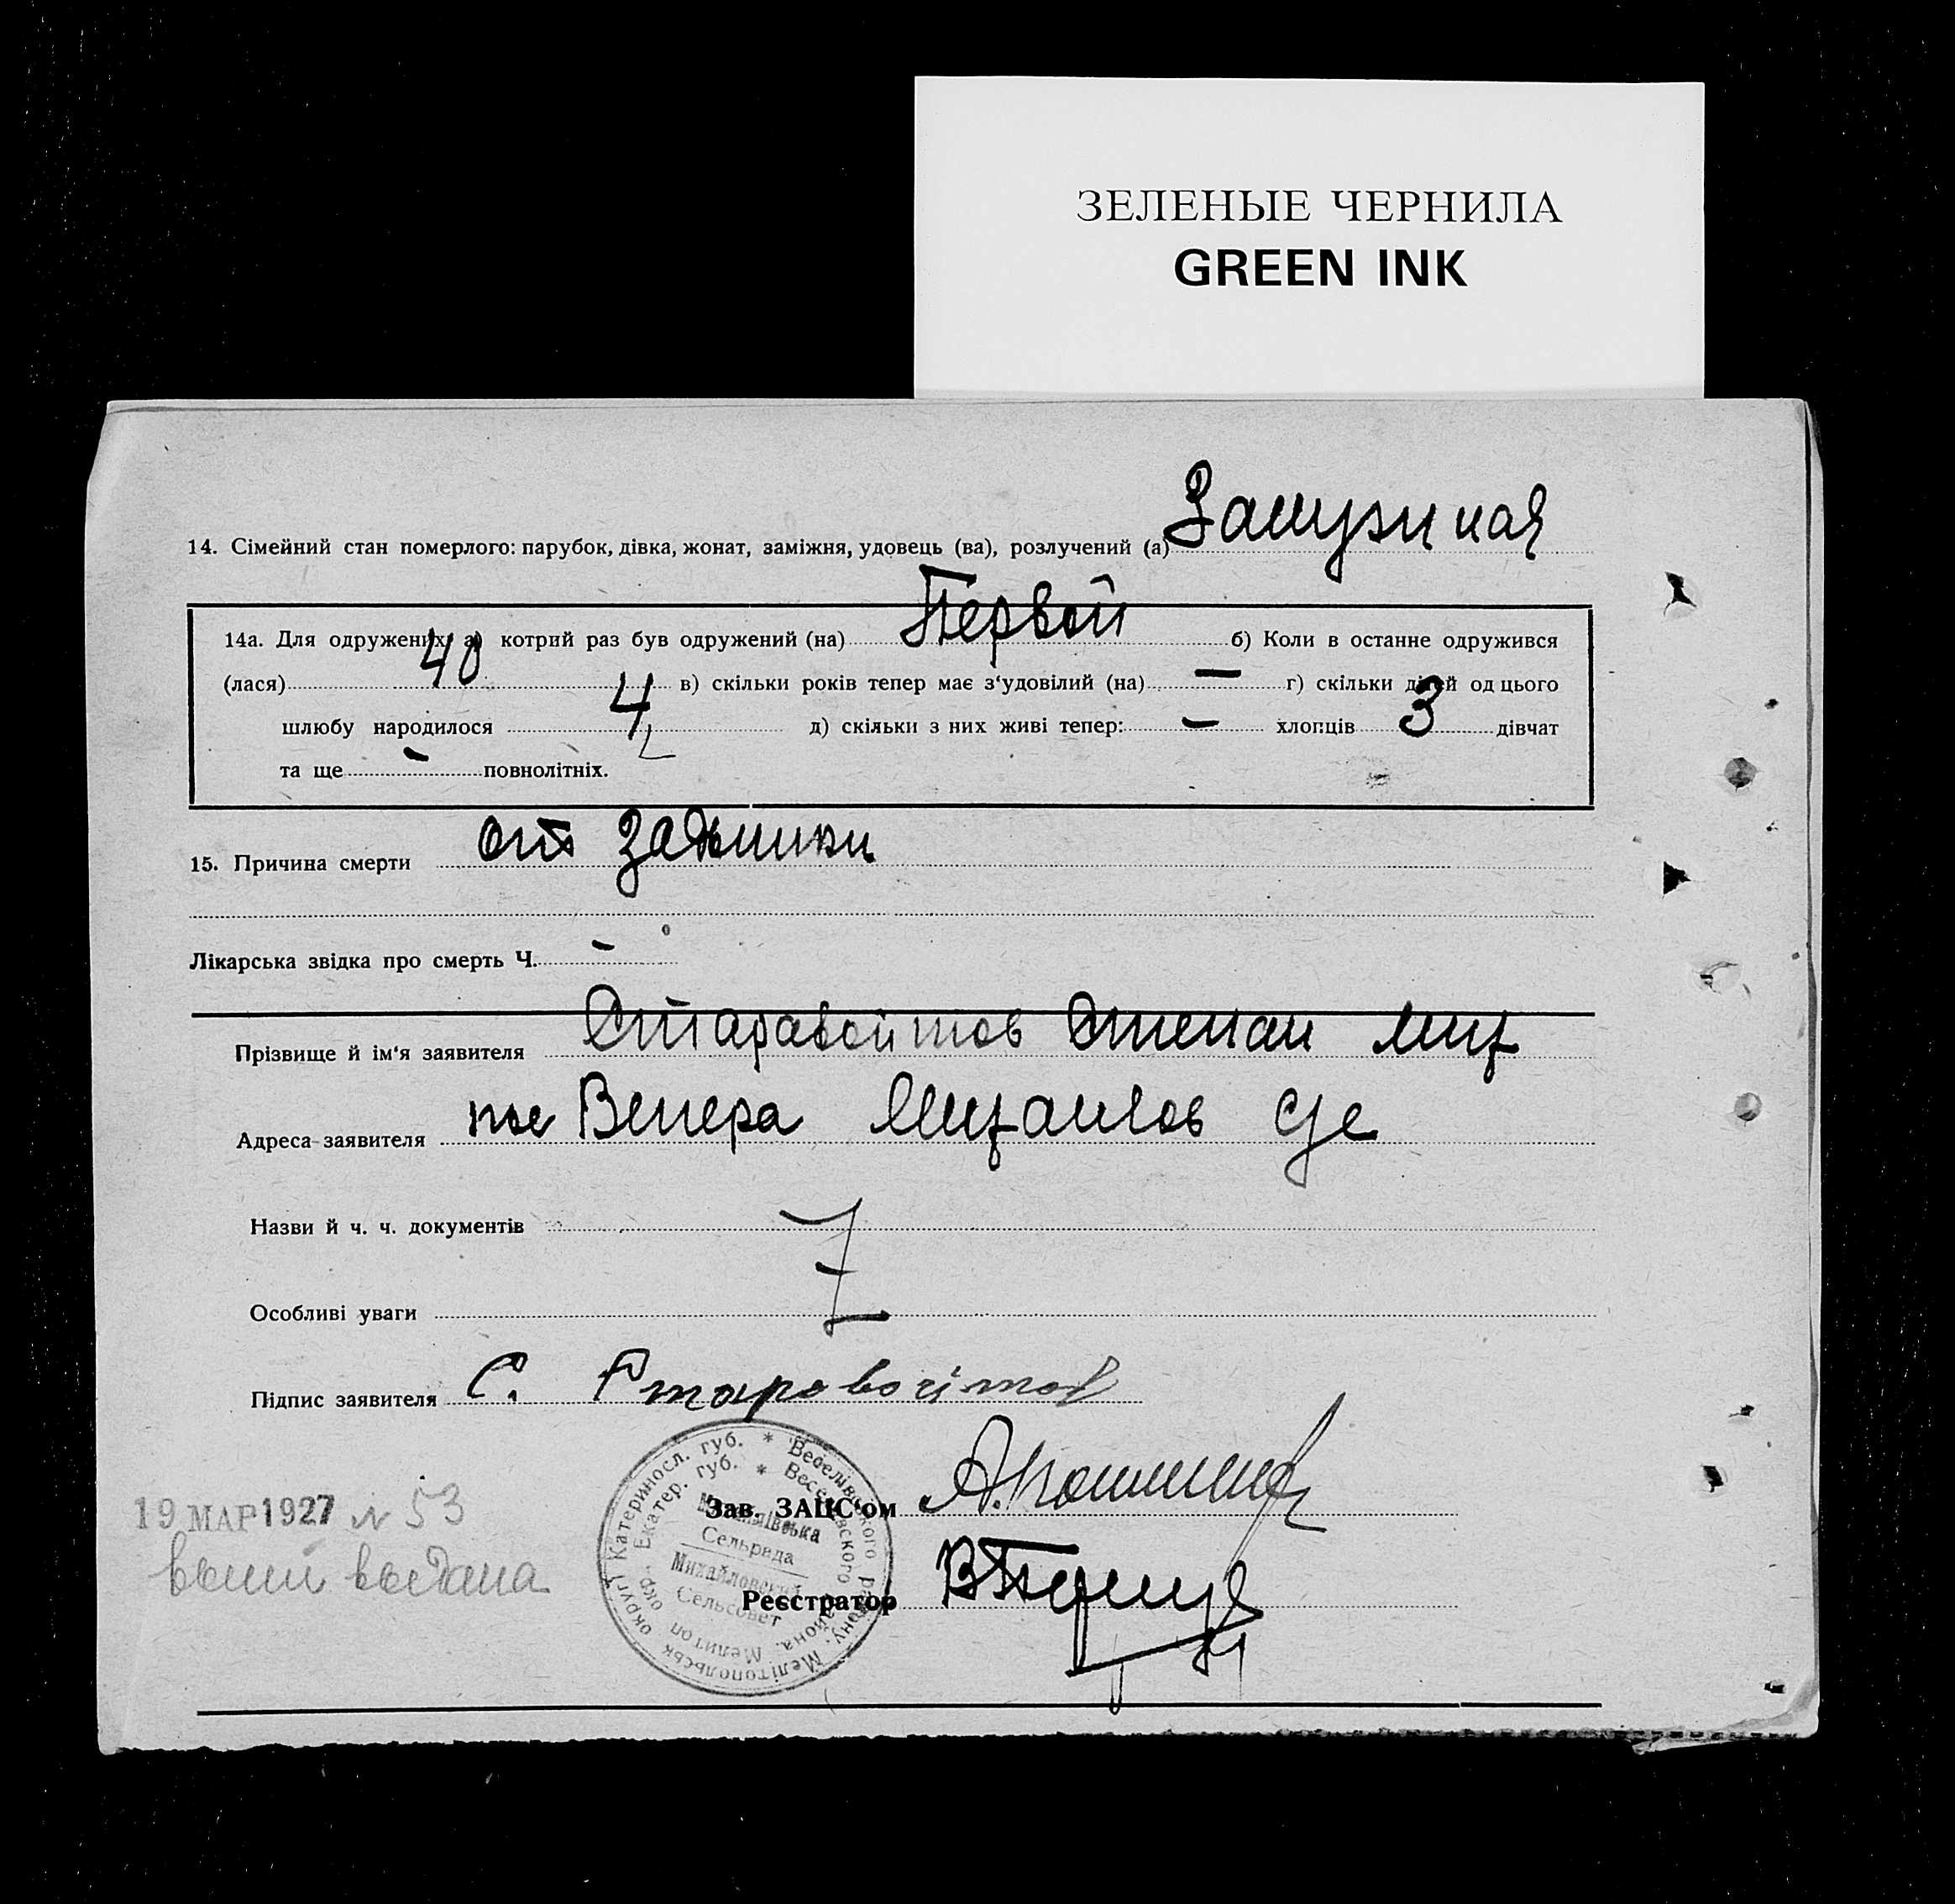 ЗЕЛЕНЫЕ ЧЕРНИЛА
GREEN INK
14. Сімейний стан померлого: парубок, дівка, жонат, заміжня, удовець (ва), розлучений (а) Замужная
14а. Для одружених а) котрий раз був одружений (на) Первой б) Коли в останне одружився
(лася) 40 в) скільки років тепер має з‘удовілий (на) — г) скільки дітей од цього
шлюбу народилося 4 д) скільки з них живі тепер: — хлопців 3 дівчат
та ще - повнолітніх.
15. Причина смерти от задышки
Лікарська звідка про смерть Ч. -
Прізвище й ім‘я заявителя Старавойтов Степан Мих
Адреса заявителя пос Венера Михаилов с/с
Назви й ч. ч. документів
Особливі уваги
Підпис заявителя С. Старовойтов
Катериносл. губ. * Веселівського району, Мелітопольськ округі
Екатер. губ. * Веселовского района, Мелитоп окр.
Сельрада
Михайловский
Сельсовет
Зав. ЗАЦС‘ом
Реєстратор
19 МАР 1927 N 53
выпись выдана